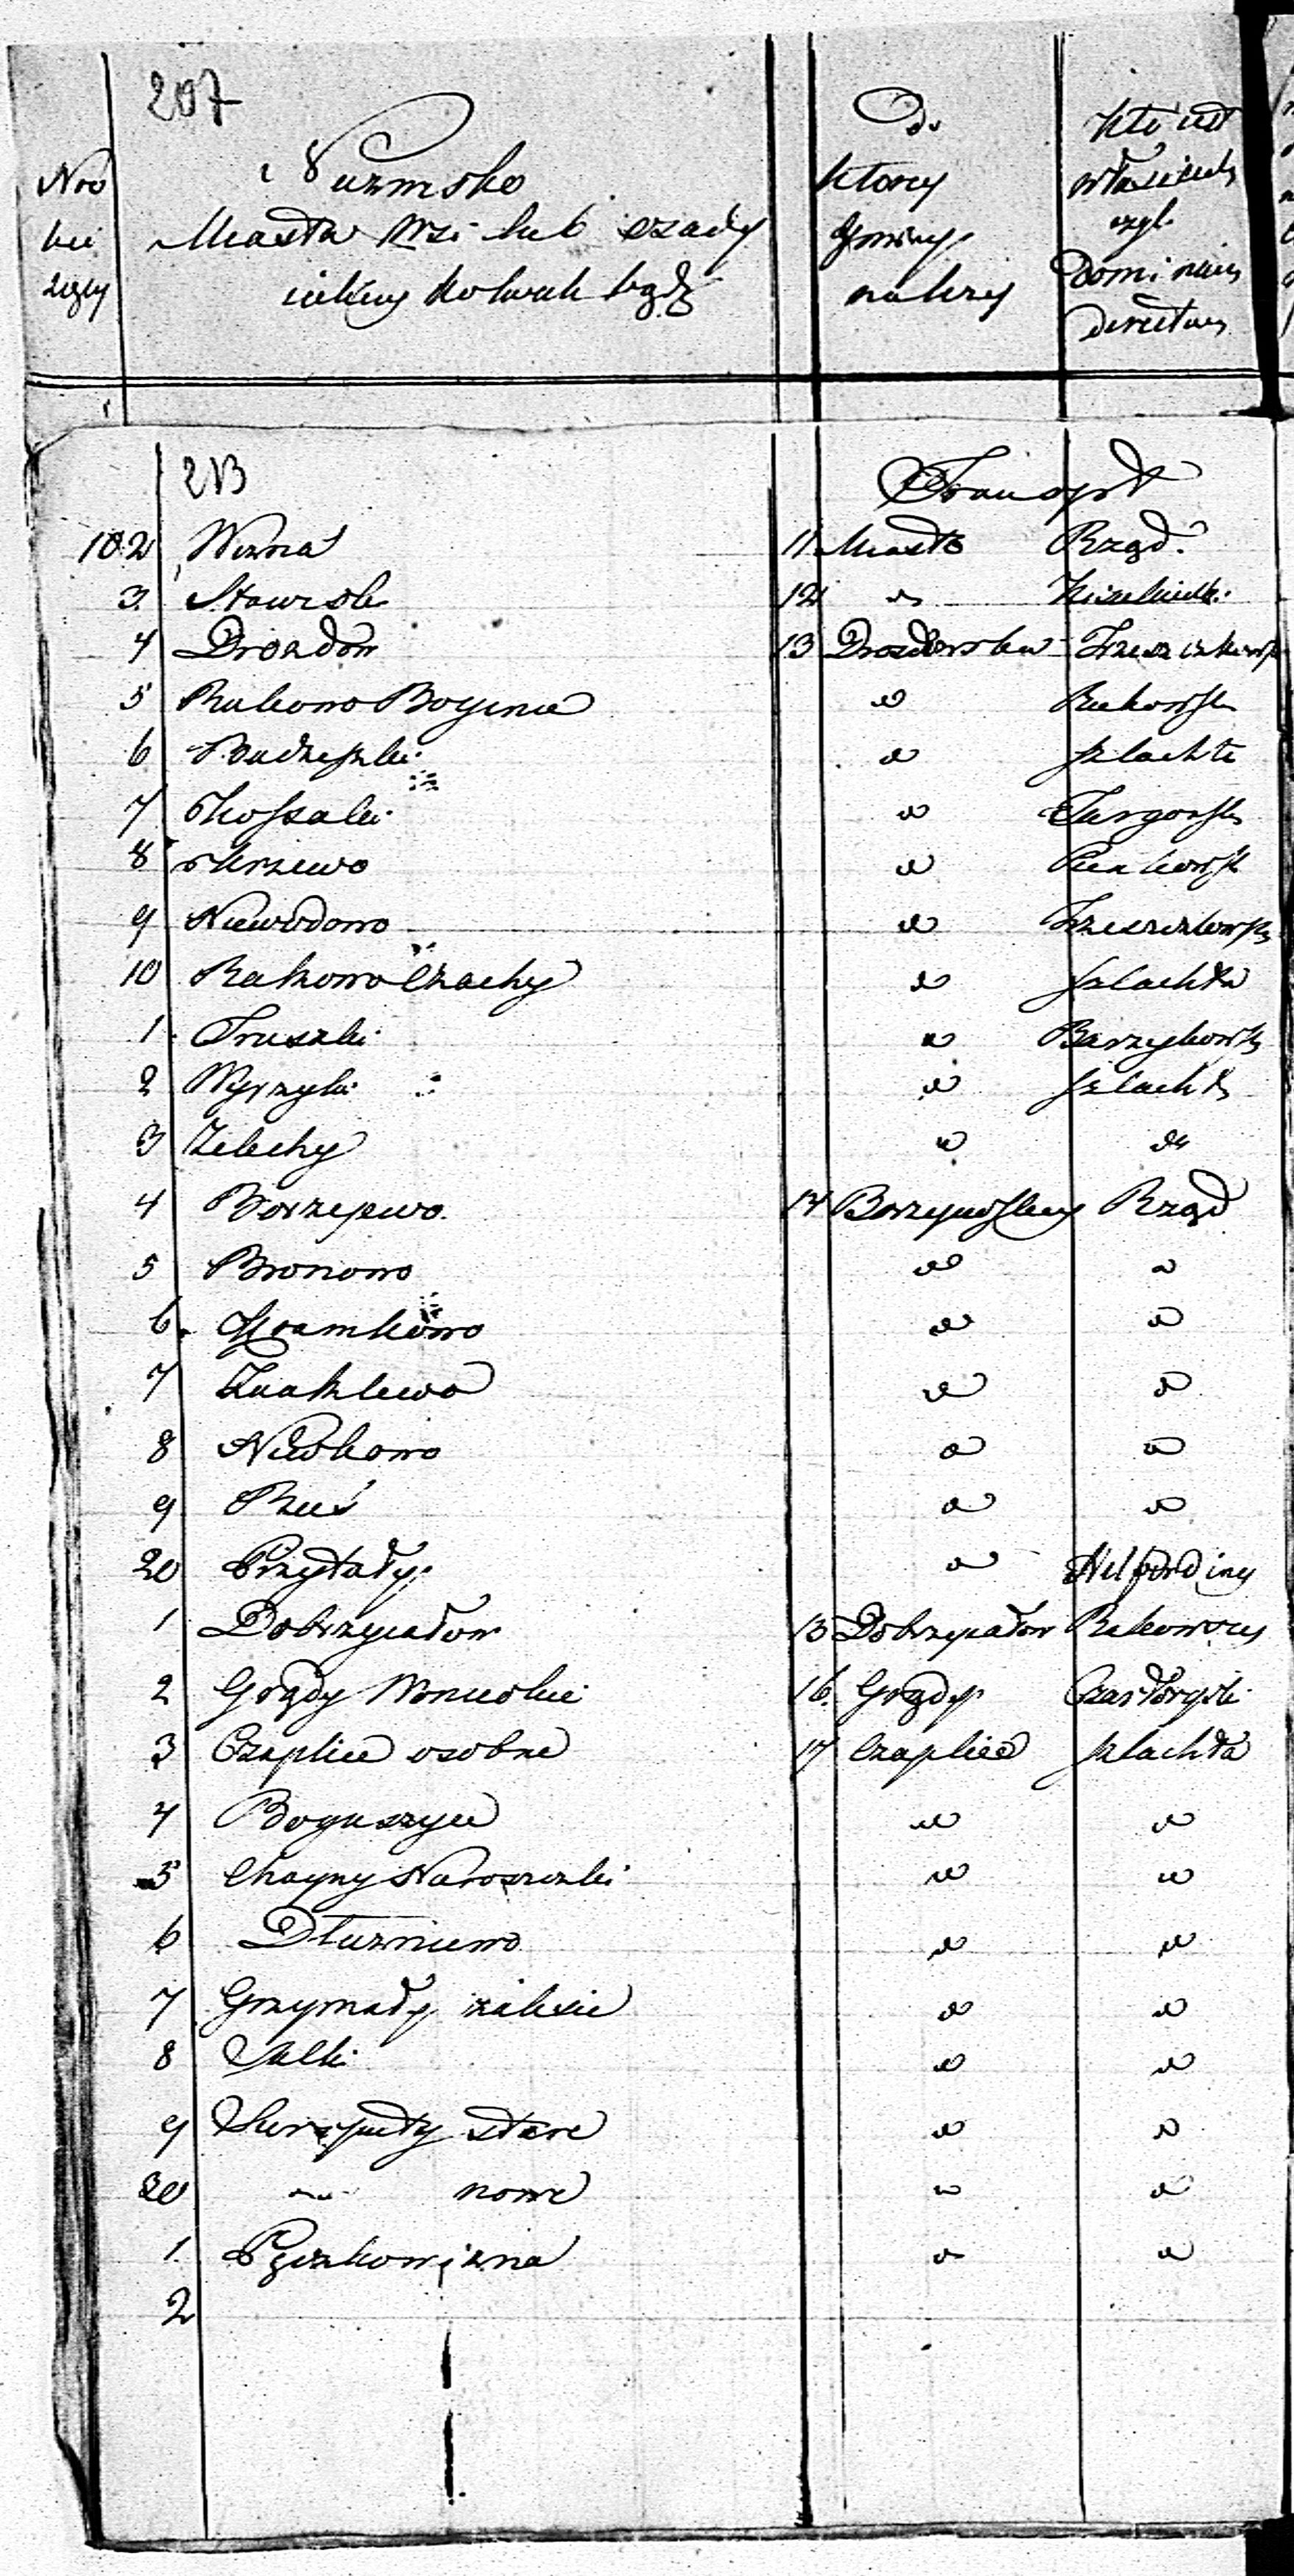 207
Nro
bie
żący
Nazwisko
Miasta Wsi lub osady
iakiey kolwiek bądź
Do
ktorey
Gminy
należy
Kto iest
właściciel
czyli
Dominium
directum
213
Transport
102 Wizna 11 Miasto Rząd.
3. Stawisk 12 " Kisielnicki.
4 Drozdow 13 Drozdowska Trzeszczkowsk
5 Rakowo Boginie " Rakowsk
6 Budziszki " szlachta
7 Kossaki " Targonsk
8 Krzewo " Pienkowsk
9 Niewodowo " Trzeszczkowsk
10 Rakowo Czachy " szlachta
1 Truszki " Barzykowsk
2 Wyrzyki " szlachta
3 Zelechy " "
4 Borzejewo. 14 Borzejewskiey Rząd
5 Bronowo " "
6. Kramkowo " "
7 Kuaklewo " "
8 Niwkowo " "
9 Ruś " "
20 Przytuły "
1 Dobrzyiałow 15 Dobrzyiałow Rakowscy
2 Grądy Woniecko 16. Grądy Czartoryski
3 Czaplice osobne 17 Czaplice szlachta
4 Boguszyce " "
5 Choyny Naroszczki " "
6 Dłuzniewo " "
7 Grzymały zalesie " "
8 Jałki " "
9 Kurpiki stare " "
30 " nowe " "
1. Pęczkowizna " "
2